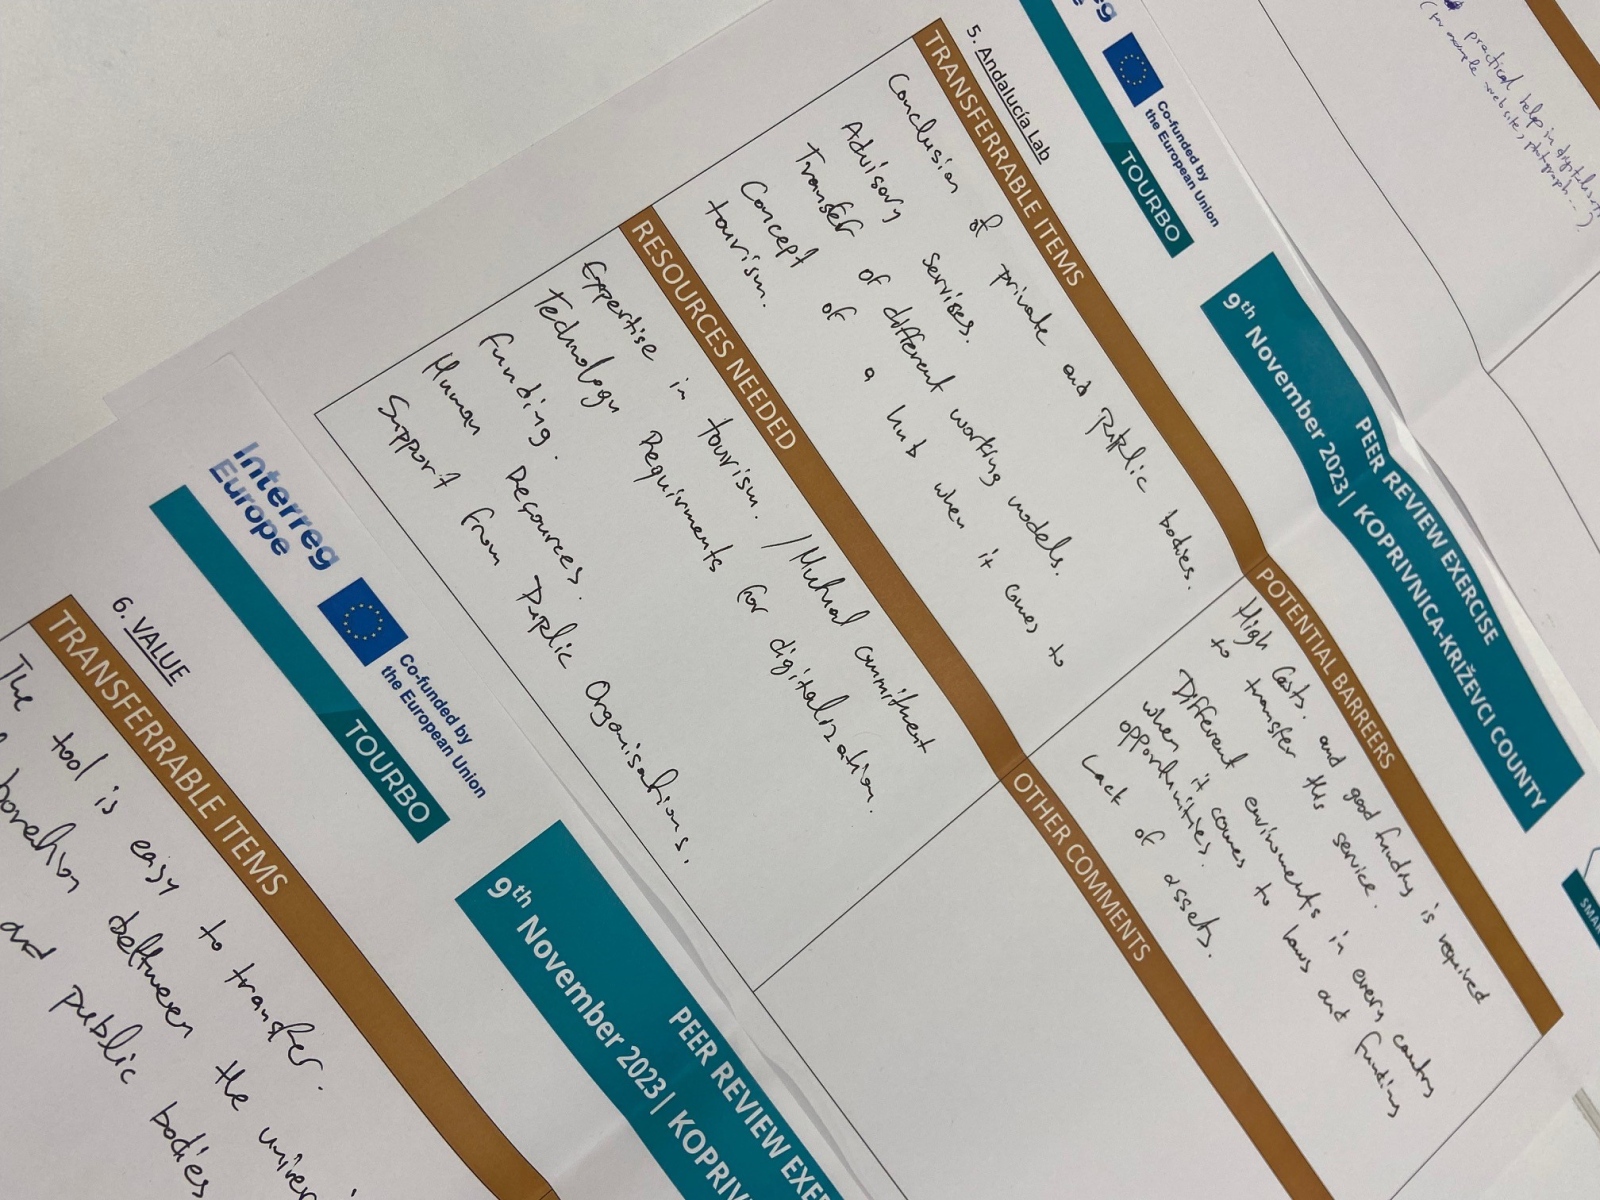 practical help in
(for example website, photograph...)
Co-funded by
the European Union
TOURBO
PEER REVIEW EXERCISE
9th November 2023 | KOPRIVNICA-KRIŽEVCI COUNTY
5. Andalucía Lab
TRANSFERRABLE ITEMS
Conclusion of private and Public bodies.
Advisory servises.
Transfer of different working models.
Concept of a hub when it comes to
tourism.
POTENTIAL BARREERS
High Costs. and good funding is required
to transfer this service.
Different enviroments in every country
when it comes to laws and funding
opportunities.
Lack of assets.
RESOURCES NEEDED
Expertise in tourism. / Mutual commitment
Technology Requirments for digitalization.
Funding.
Human Recources.
Support from Public Organisations.
OTHER COMMENTS
SMA
Interreg
Europe
Co-funded by
the European Union
TOURBO
PEER REVIEW EXE
9th November 2023 | KOPRIV
6. VALUE
TRANSFERRABLE ITEMS
The tool is easy to transfer.
beltween the univer
and public bodies